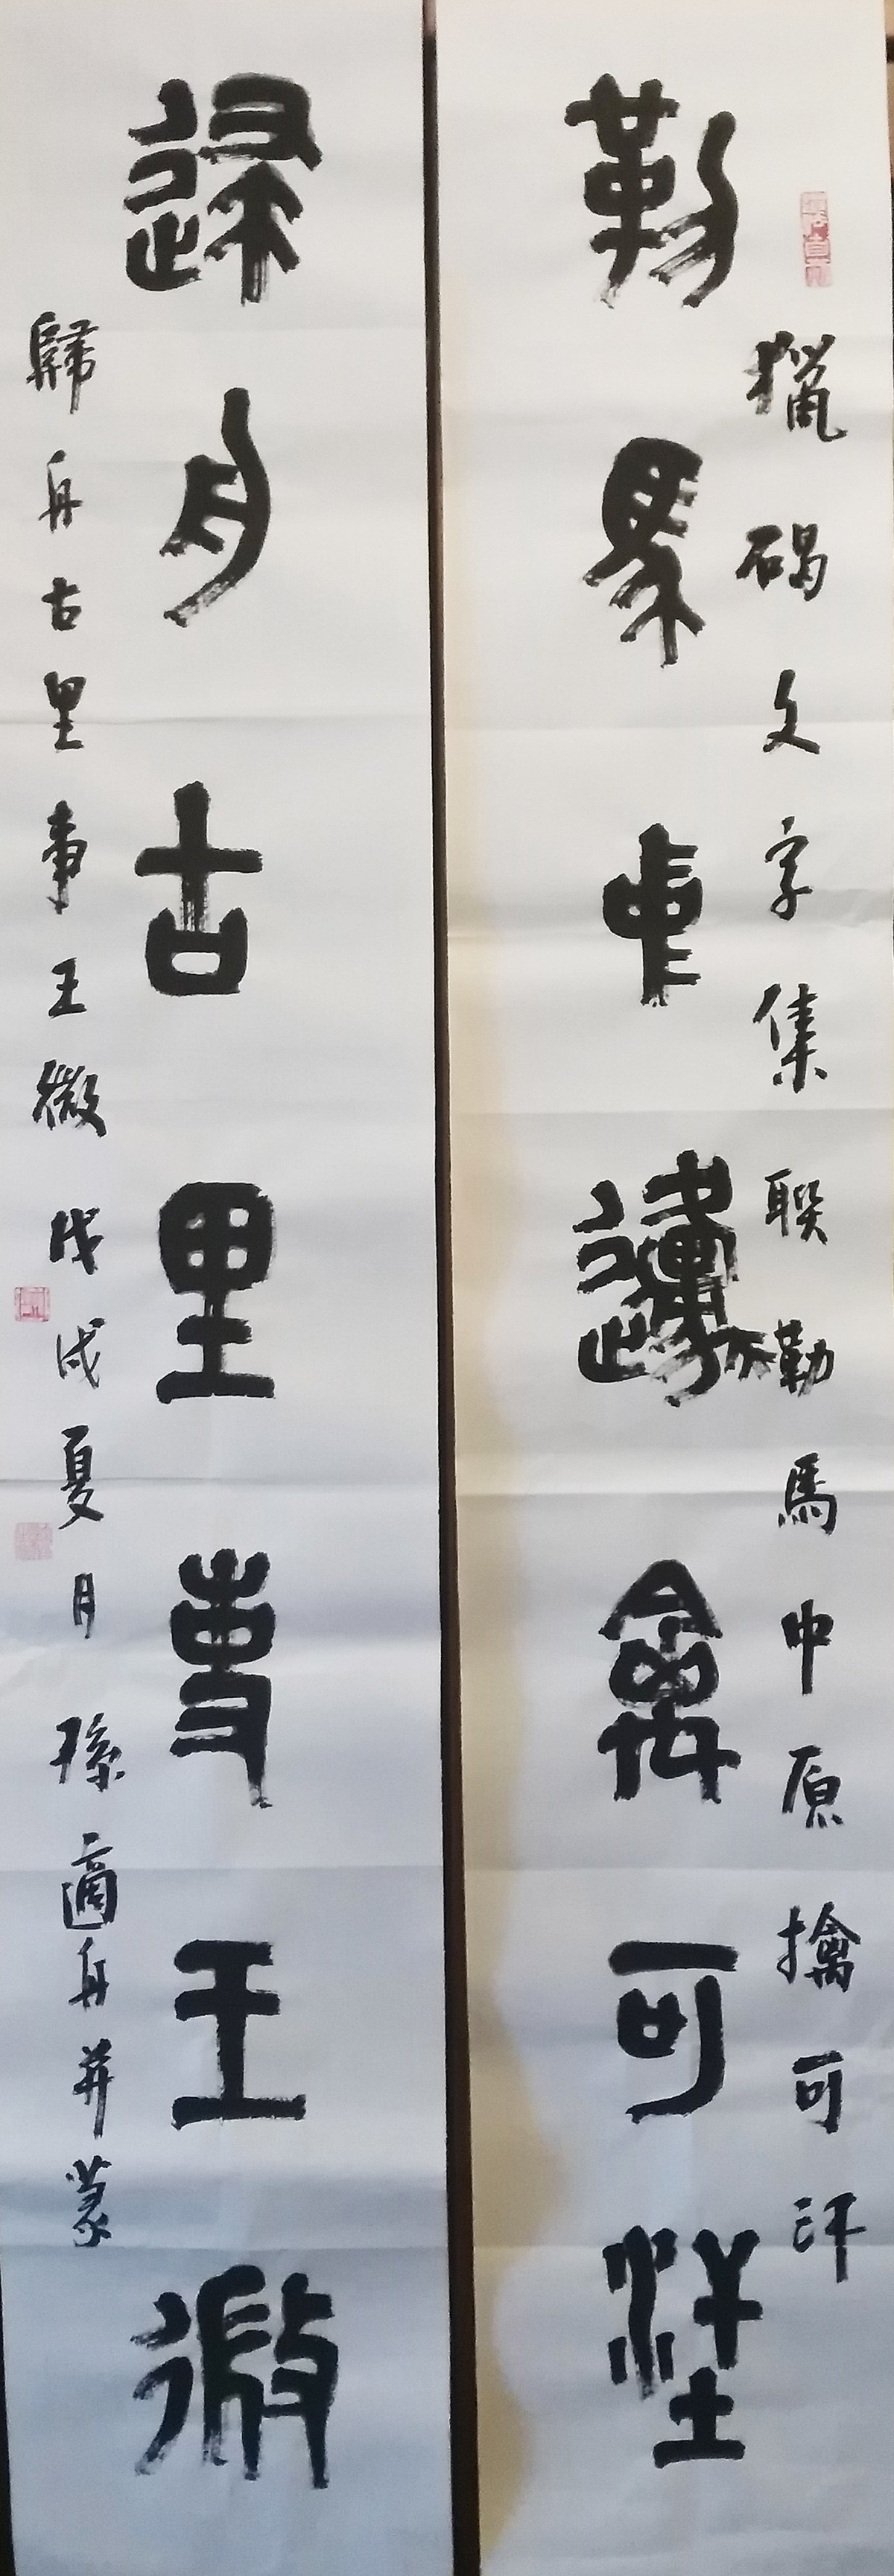 獵碣文字集聯勒馬中原擒可汗
勒馬中邍禽可
歸舟古里事王微
歸舟古里事王微 戊戌夏月 孫適舟并篆